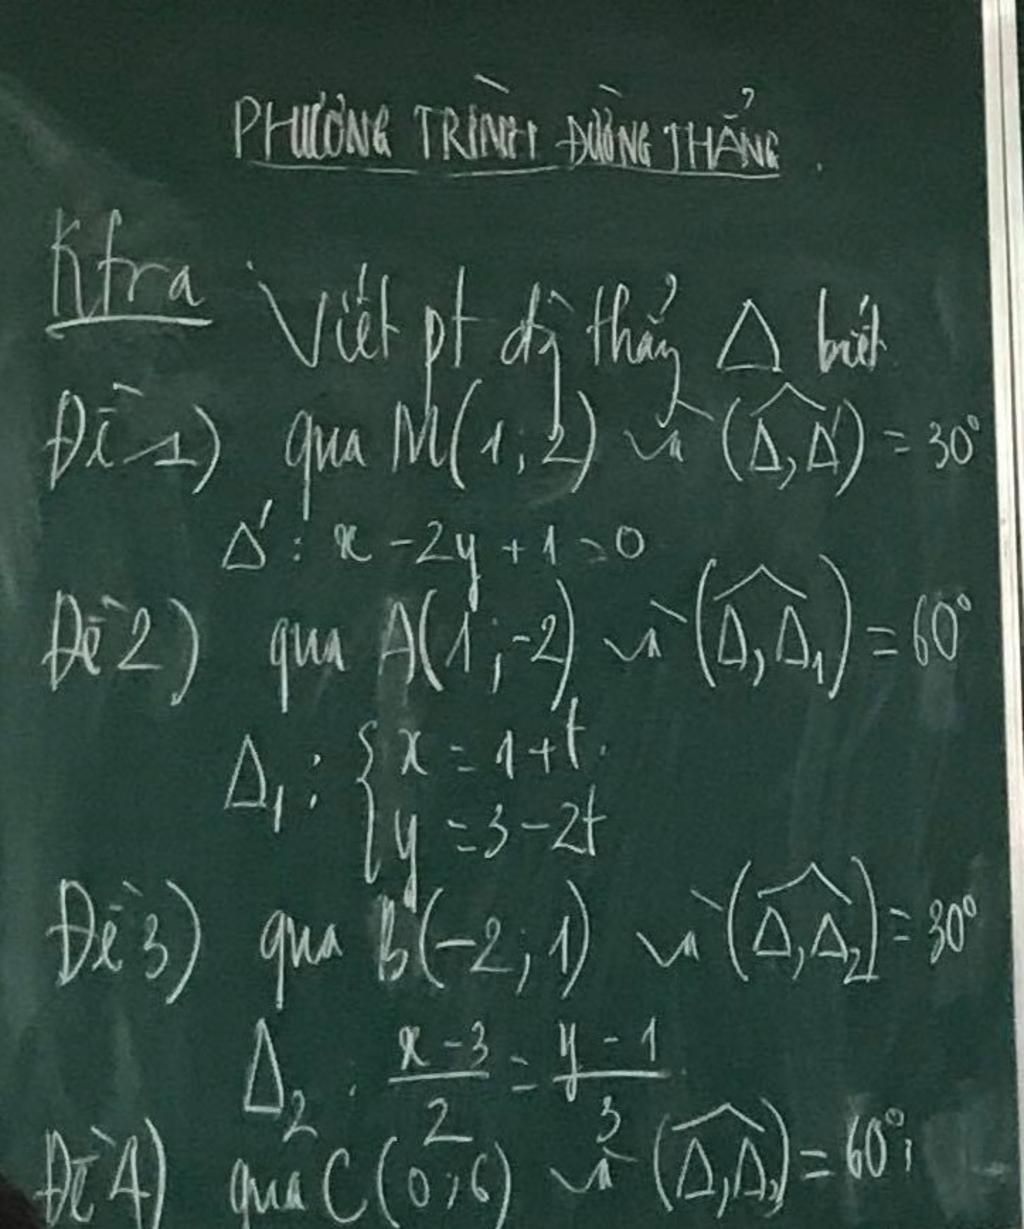 PHƯƠNG TRÌNH ĐƯỜNG THẲNG.
Ktra Viết pt đg thẳg Δ biết
Đề 1) qua M(1; 2) và (Δ, Δ') = 30°
Δ': x - 2y + 1 = 0
Đề 2) qua A(1; -2) và (Δ, Δ₁) = 60°
Δ₁: { x = 1 + t.
y = 3 - 2t
Đề 3) qua B(-2; 1) và (Δ, Δ₂) = 30°
Δ₂: (x - 3)/2 = (y - 1)/3
Đề 4) qua C(0; 6) và (Δ, Δ₃) = 60°;